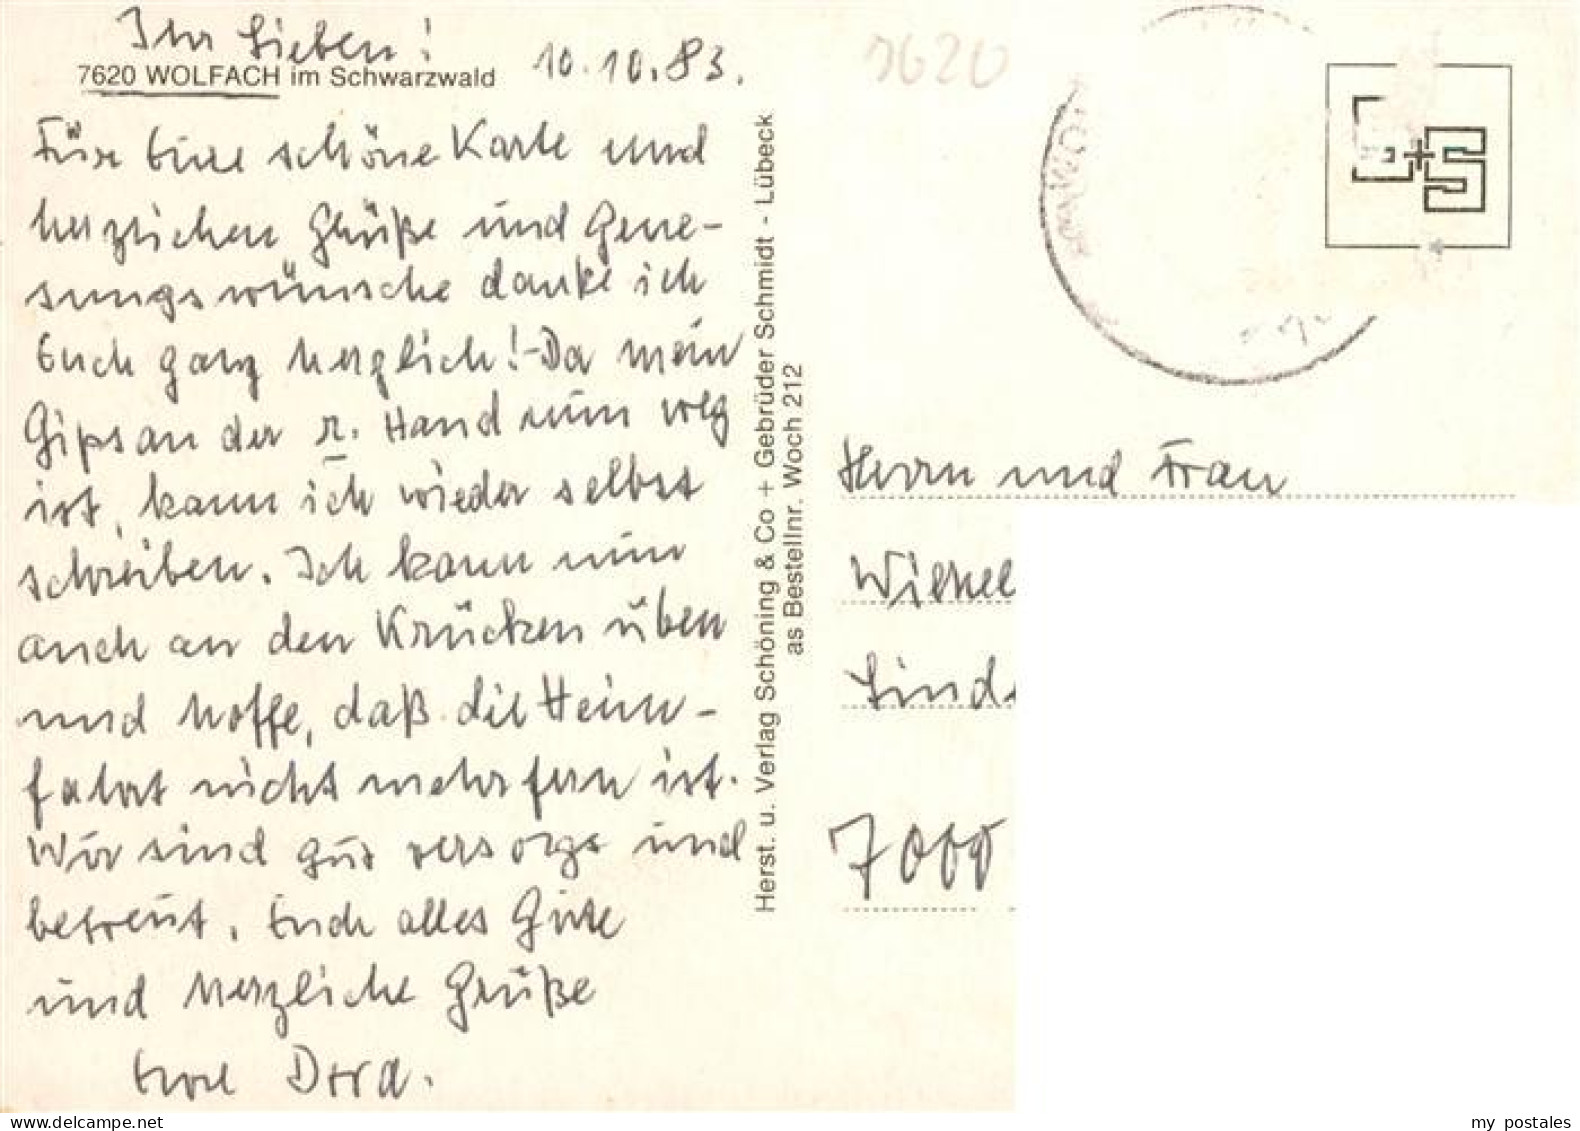 Ihr Lieben!
7620 WOLFACH im Schwarzwald
10.10.83.
Für Eure schöne Karte und
herzlichen Grüße und Gene-
sungswünsche danke ich
Euch ganz herzlich! - Da mein
Gips an der r. Hand nun weg
ist, kann ich wieder selbst
schreiben. Ich kann nun
auch an den Krücken üben
und hoffe, daß die Heim-
fahrt nicht mehr fern ist.
Wir sind gut versorgt und
betreut. Euch alles Gute
und herzliche Grüße
Eure Dora.
Herst. u. Verlag Schöning & Co + Gebrüder Schmidt - Lübeck
as Bestellnr. Woch 212
7620
S+S
Herrn und Frau
Wilhel
Linde
7000
delcampe.net
my postales